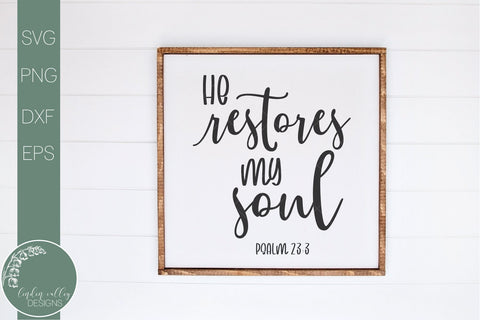 SVG
PNG
DXF
EPS
He
restores
my
soul
PSALM 23:3
linden valley
DESIGNS